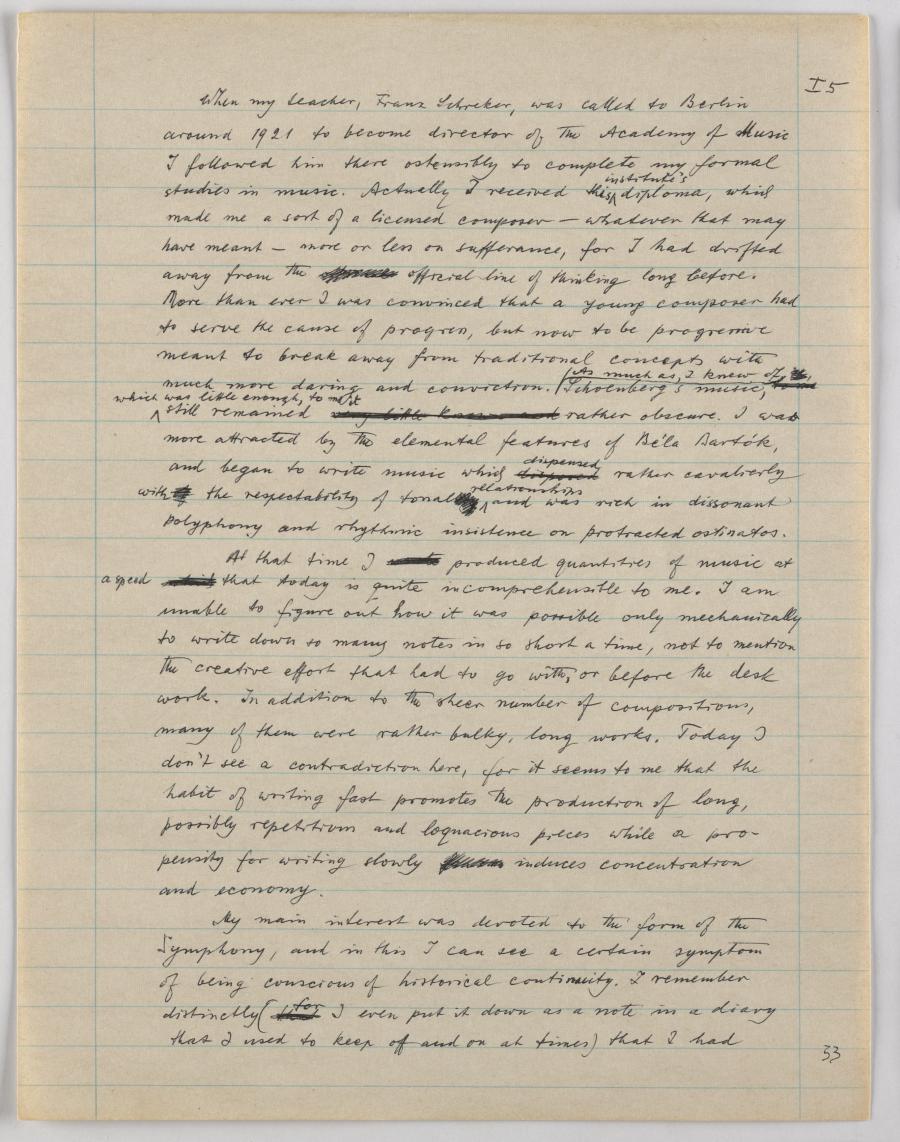 I 5
When my teacher, Franz Schreker, was called to Berlin
around 1921 to become director of the Academy of Music
I followed him there ostensibly to complete my formal
institute's
studies in music. Actually I received this diploma, which
made me a sort of a licensed composer — whatever that may
have meant — more or less on sufferance, for I had drifted
away from the official line of thinking long before.
More than ever I was convinced that a young composer had
to serve the cause of progress, but now to be progressive
meant to break away from traditional concepts with
(As much as I knew of it,
much more daring and conviction. Schoenberg's music,
which was little enough, to me it
still remained very little known and rather obscure. I was
more attracted by the elemental features of Béla Bartók,
dispensed
and began to write music which disposed rather cavalierly
relationships
with the respectability of tonal and was rich in dissonant
polyphony and rhythmic insistence on protracted ostinatos.
At that time I wrote produced quantities of music at
a speed which that today is quite incomprehensible to me. I am
unable to figure out how it was possible only mechanically
to write down so many notes in so short a time, not to mention
the creative effort that had to go with, or before the desk
work. In addition to the sheer number of compositions,
many of them were rather bulky, long works. Today I
don't see a contradiction here, for it seems to me that the
habit of writing fast promotes the production of long,
possibly repetitious and loquacious pieces while a pro-
pensity for writing slowly induces concentration
and economy.
My main interest was devoted to the form of the
Symphony, and in this I can see a certain symptom
of being conscious of historical continuity. I remember
for
distinctly ( I even put it down as a note in a diary
that I used to keep off and on at times) that I had
33